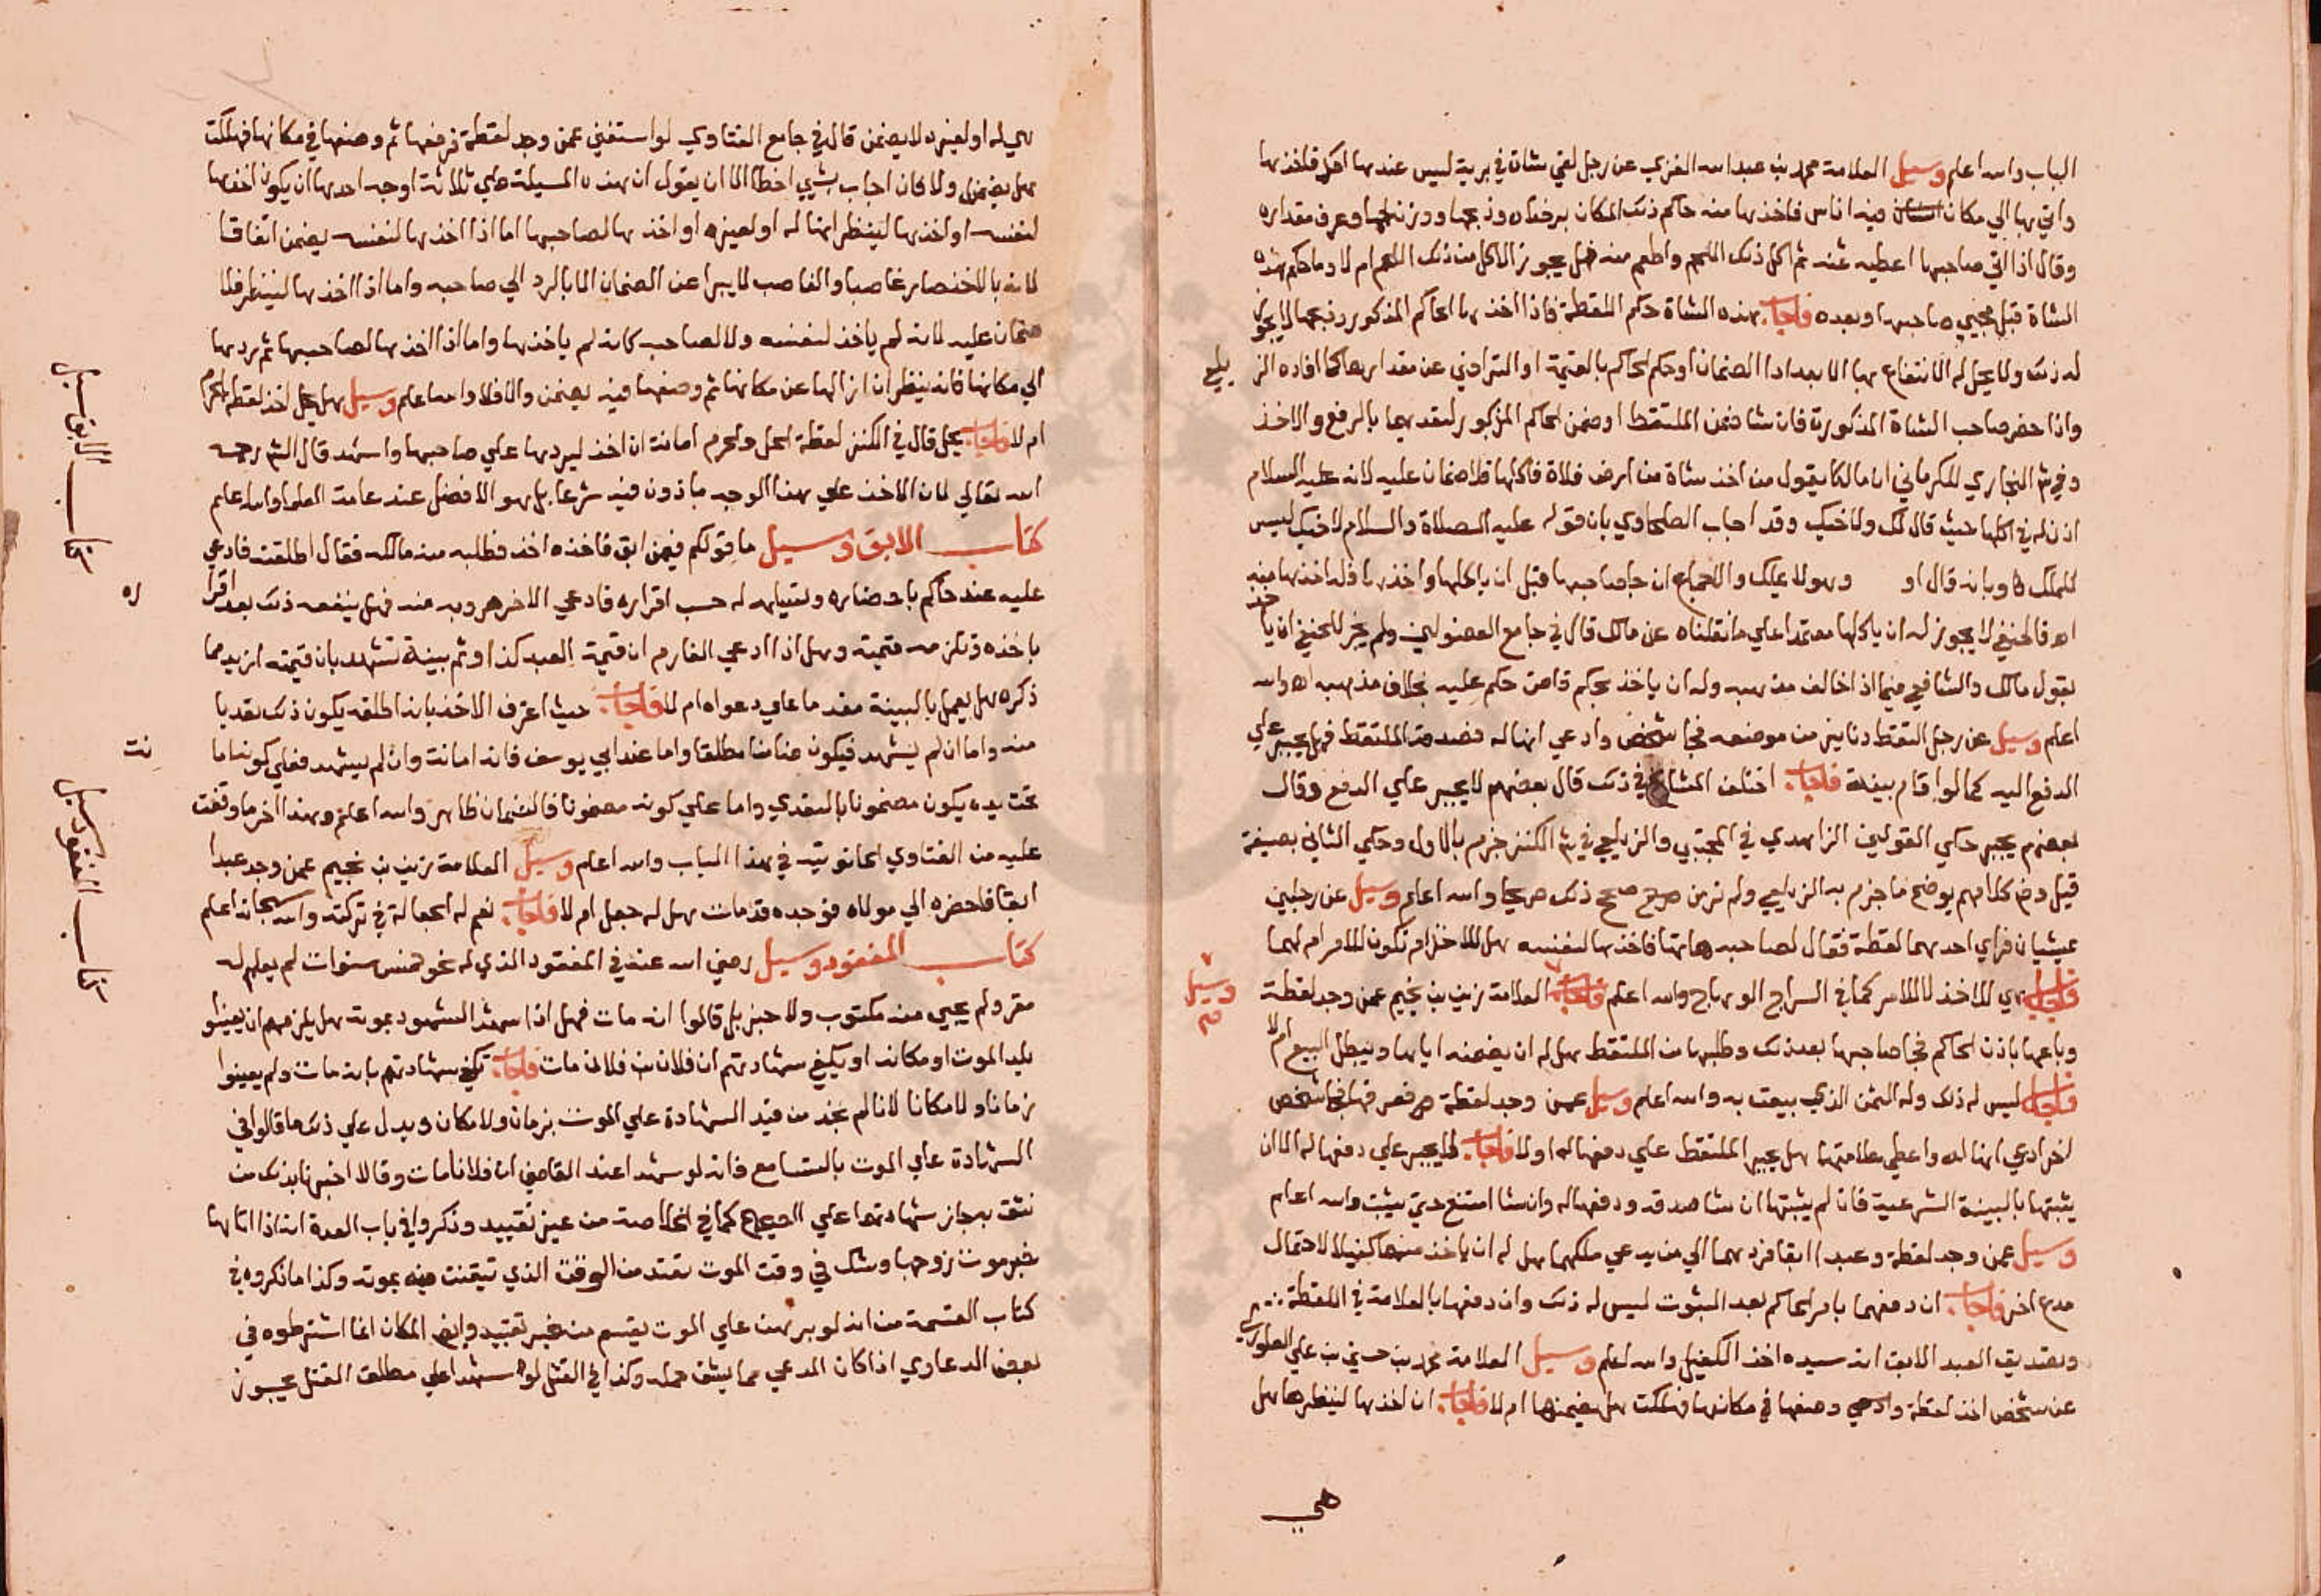 الباب والله اعلم وسيل العلامة محمد بن عبد الله الغزي عن رجل لقي شاة في برية ليس عندها احد فاخذها
واتي بها الي مكان فيه اناس فاخذها منه حاكم ذلك المكان برضاه وذبحها ووزن لحمها وعرف مقداره
وقال اذا اتي صاحبها اعطيه ثمنه ثم اكل ذلك اللحم واطعم منه فهل يجوز الاكل من ذلك اللحم ام لا وما حكم هذه
الشاة قبل مجيي صاحبها وبعده فاجاب هذه الشاة حكم اللقطة فاذا اخذها الحاكم المذكور وذبحها لا يجوز
له ذلك ولا يحل له الانتفاع بها الا بعد ادا الضمان او حكم الحاكم بالقيمة او التراضي عن مقدارها كما افاده الز
يلعي
واذا حضر صاحب الشاة المذكورة فان شا ضمن الملتقط او ضمن الحاكم المذكور لتعديهما بالرفع والاخذ
وفي ش البخاري للكرماني ان مالكا يقول من اخذ شاة من ارض فلاة فاكلها فلا ضمان عليه لانه عليه السلام
اذن له في اكلها حيث قال لك ولاخيك وقد اجاب الطحاوي بان قوله عليه الصلاة والسلام لاخيك ليس
للملك وبانه قال او وهو لا يملك والاجماع ان جا صاحبها قبل ان ياكلها واخذها فله اخذها منه
اه فالحنفي لا يجوز له ان ياكلها معتمدا علي ما نقلناه عن مالك قال في جامع الفصولين ولم يجز للحنفي ان ياخذ
بقول مالك والشافعي فيما اذا خالف مذهبه وله ان ياخذ بحكم قاض حكم عليه بخلاف مذهبه اه والله
اعلم وسيل عن رجل التقط دنانير من موضعه فجا شخص وادعي انها له فصدقه الملتقط فهل يجبر علي
الدفع اليه كما لو اقام بينة فاجاب اختلف المشايخ في ذلك قال بعضهم لا يجبر علي الدفع وقال
بعضهم يجبر حكي القولين الزاهدي في المجتبي والزيلعي في ش الكنز جزم بالاول وحكي الثاني بصيغة
قيل وفي كلامهم يوضح ما جزم به الزيلعي ولم نر من صرح صحح ذلك صريحا والله اعلم وسيل عن رجلين
يمشيان فراي احدهما لقطة فقال لصاحبه هاتها فاخذها لنفسه هل للاخذ ام تكون للامر ام لهما
فاجاب هي للاخذ لا للامر كما في السراج الوهاج والله اعلم العلامة زين بن نجيم عمن وجد لقطة
وسيل
وباعها باذن الحاكم فجا صاحبها بعد ذلك وطلبها من الملتقط هل له ان يضمنه اياها ويبطل البيع ام لا
فاجاب ليس له ذلك وله الثمن الذي بيعت به والله اعلم وسيل عمن وجد لقطة فجا شخص
اخر ادعي انها له واعطي علامتها هل يجبر الملتقط علي دفعها له او لا فاجاب لا يجبر علي دفعها له الا ان
يثبتها بالبينة الشرعية فان لم يثبتها ان شا صدقه ودفعها له وان شا امتنع حتي يثبت والله اعلم
وسيل عمن وجد لقطة وعبدا ابقا فردهما الي من يدعي ملكهما هل له ان ياخذ منهما كفيلا لاحتمال
مدع اخر فاجاب ان دفعهما بامر الحاكم بعد الثبوت ليس له ذلك وان دفعها بالعلامة في اللقطة
وبتصديق العبد الابق انه سيده اخذ الكفيل والله اعلم وسيل العلامة محمد بن حسين بن علي
عن شخص اخذ لقطة وضعها في مكانها فهلكت هل يضمنها ام لا فاجاب ان اخذها لينظرها هل
هي
هي له او لغيره لا يضمن قال في جامع الفتاوي لو استفتي عمن وجد لقطة فرفعها ثم وضعها في مكانها فهلكت
هل يضمن ولا فان اجاب بشيي اخطا الا ان يقول ان هذه المسيلة علي ثلاثة اوجه احدها ان يكون اخذها
لنفسه او اخذها لينظر انها له او لغيره او اخذها لصاحبها اما اذا اخذها لنفسه يضمن اتفاقا
لانه بالاخذ صار غاصبا والغاصب لا يبرا عن الضمان الا بالرد الي صاحبه واما اذا اخذها لينظر فلا
ضمان عليه لانه لم ياخذ لنفسه ولا لصاحب كانه لم ياخذها واما اذا اخذها لصاحبها ثم ردها
الي مكانها فانه ينظر ان ازالها عن مكانها ثم وضعها فيه يضمن والا فلا والله اعلم وسيل هل يحل اخذ لقطة الحرم
ام لا فاجاب يحل قال في الكنز لقطة الحل والحرم امانة ان اخذ ليردها علي صاحبها واشهد قال الش رحمه
الله تعالي لان الاخذ علي هذا الوجه ماذون فيه شرعا بل هو الافضل عند عامة العلما والله اعلم
كتاب الابق وسيل ما قولكم فيمن ابق فاخذه اخذ فطلبه منه مالكه فقال اطلقته فادعي
عليه عند حاكم باحضاره وبقيامه له حسب اقراره فادعي الاخر هروبه منه فهل ينفعه ذلك بعد اقرا
ره
باخذه وتلزمه قيمته وهل اذا ادعي الغارم ان قيمة العبد كذا وثم بينة تشهد بان قيمته ازيد مما
ذكره هل يعمل بالبينة مقدما علي دعواه ام لا فاجاب حيث اعترف الاخذ بانه اطلقه يكون ذلك تعديا
منه واما ان لم يشهد فيكون ضامنا مطلقا واما عند ابي يوسف فانه امانة وان لم يشهد فعلي كونها اما
نت
تحت يده يكون مضمونا بالتعدي واما علي كونه مضمونا فالضمان ظاهر والله اعلم وهذا اخر ما وقفت
عليه من الفتاوي الحانوتيه في هذا الباب والله اعلم وسيل العلامة زين بن نجيم عمن وجد عبدا
ابقا فاحضره الي مولاه فوجده قد مات هل له جعل ام لا فاجاب نعم له الجعالة في تركته والله سبحانه اعلم
كتاب المفقود وسيل رضي الله عنه في المفقود الذي له نحو خمس سنوات لم يعلم له
مقر ولم يجي منه مكتوب ولا خبر بل قالوا انه مات فهل اذا شهد الشهود بموته هل يلزمهم ان يعينوا
بلد الموت او مكانه او يكفي شهادتهم ان فلان بن فلان مات فاجاب تكفي شهادتهم بانه مات ولم يعينوا
زمانا ولا مكانا لانا لم نجد من قيد الشهادة علي الموت بزمان ولا مكان ويدل علي ذلك ما قالوا في
الشهادة علي الموت بالتسامع فانه لو شهدا عند القاضي ان فلانا مات وقالا اخبرنا بذلك من
نثق به جاز شهادتهما علي الصحيح كما في الخلاصة من غير تقييد وذكروا في باب العدة انه اذا اتاها
خبر موت زوجها وشك في وقت الموت تعتد من الوقت الذي تيقنت فيه بموته وكذا ما ذكروه في
كتاب القسمة من انه لو برهن علي الموت يقسم من غير تقييد وايض المكان انما اشترطوه في
بعض الدعاوي اذا كان المدعي مما ينقل وكذا في القتل لو شهدا علي مطلق القتل يجوز
كتاب الابق سيل
كتاب المفقود سيل